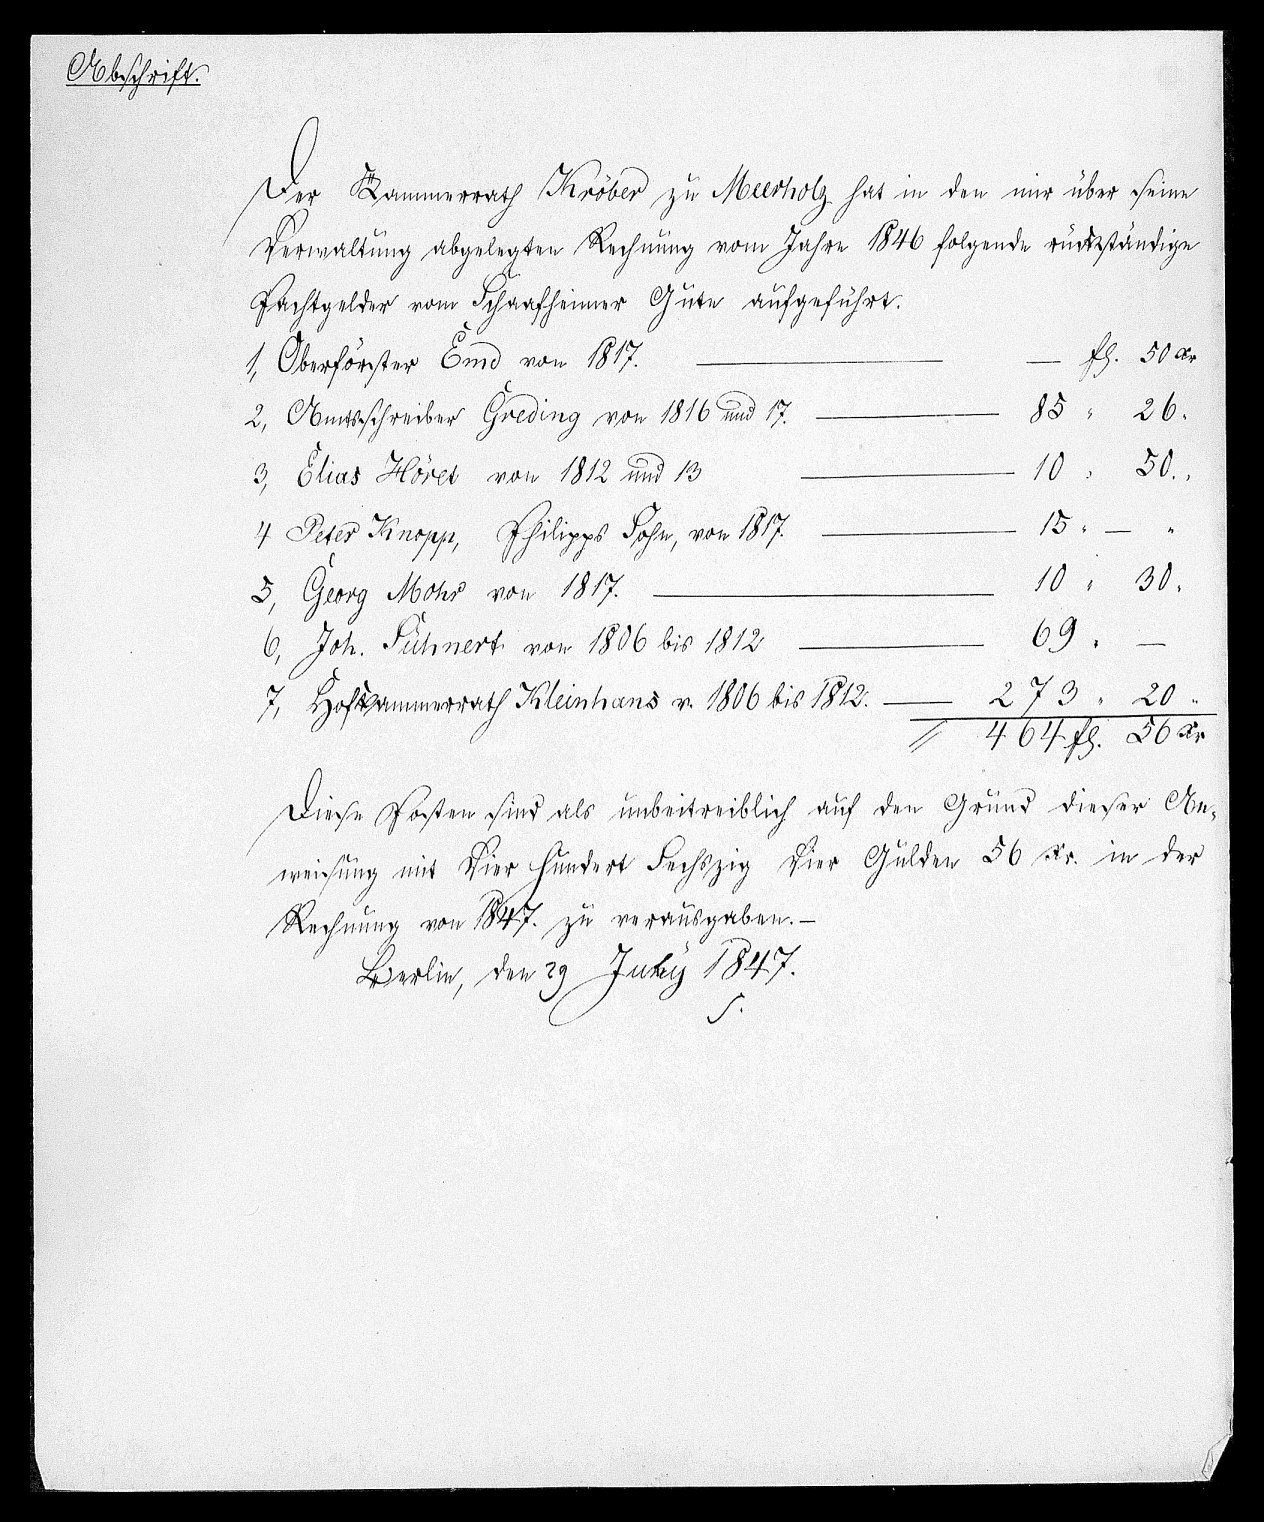 Abschrift.
Der Kammerrath Kröber zu Meerholz hat in den mir über seine
Verwaltung abgelegten Rechnung vom Jahre 1846 folgende rückständige
Pachtgelder vom Schaafheimer Gute aufgeführt.
1, Oberförster Emd von 1817. — — fl. 50 Xr
2, Amtsschreiber Greding von 1816 und 17. — 85 " 26 "
3, Elias Höret von 1812 und 13 — 10 " 50 "
4 Peter Knopp, Philipps Sohn, von 1817. — 15 " — "
5, Georg Mohr von 1817. — 10 " 30 "
6, Joh. Sühnert von 1806 bis 1812 — 69 " —
7, Hofkammerrath Kleinhans v. 1806 bis 1812. — 273 " 20 "
// 464 fl. 56 Xr
Diese Posten sind als unbeitreiblich auf den Grund dieser An-
weisung mit Vier hundert Sechszig Vier Gulden 56 Xr. in der
Rechnung von 1847. zu verausgaben. —
Berlin, den 29 July 1847.
S.